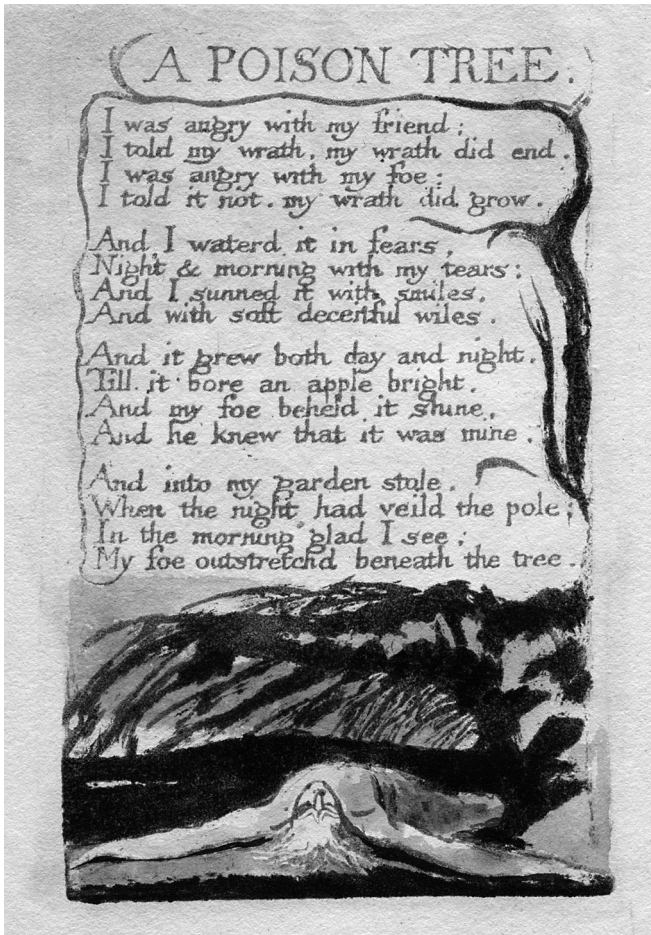 A POISON TREE.
I was angry with my friend:
I told my wrath, my wrath did end.
I was angry with my foe:
I told it not. my wrath did grow.
And I waterd it in fears,
Night & morning with my tears:
And I sunned it with smiles,
And with soft deceitful wiles.
And it grew both day and night.
Till it bore an apple bright.
And my foe beheld it shine,
And he knew that it was mine.
And into my garden stole.
When the night had veild the pole;
In the morning glad I see;
My foe outstretchd beneath the tree.